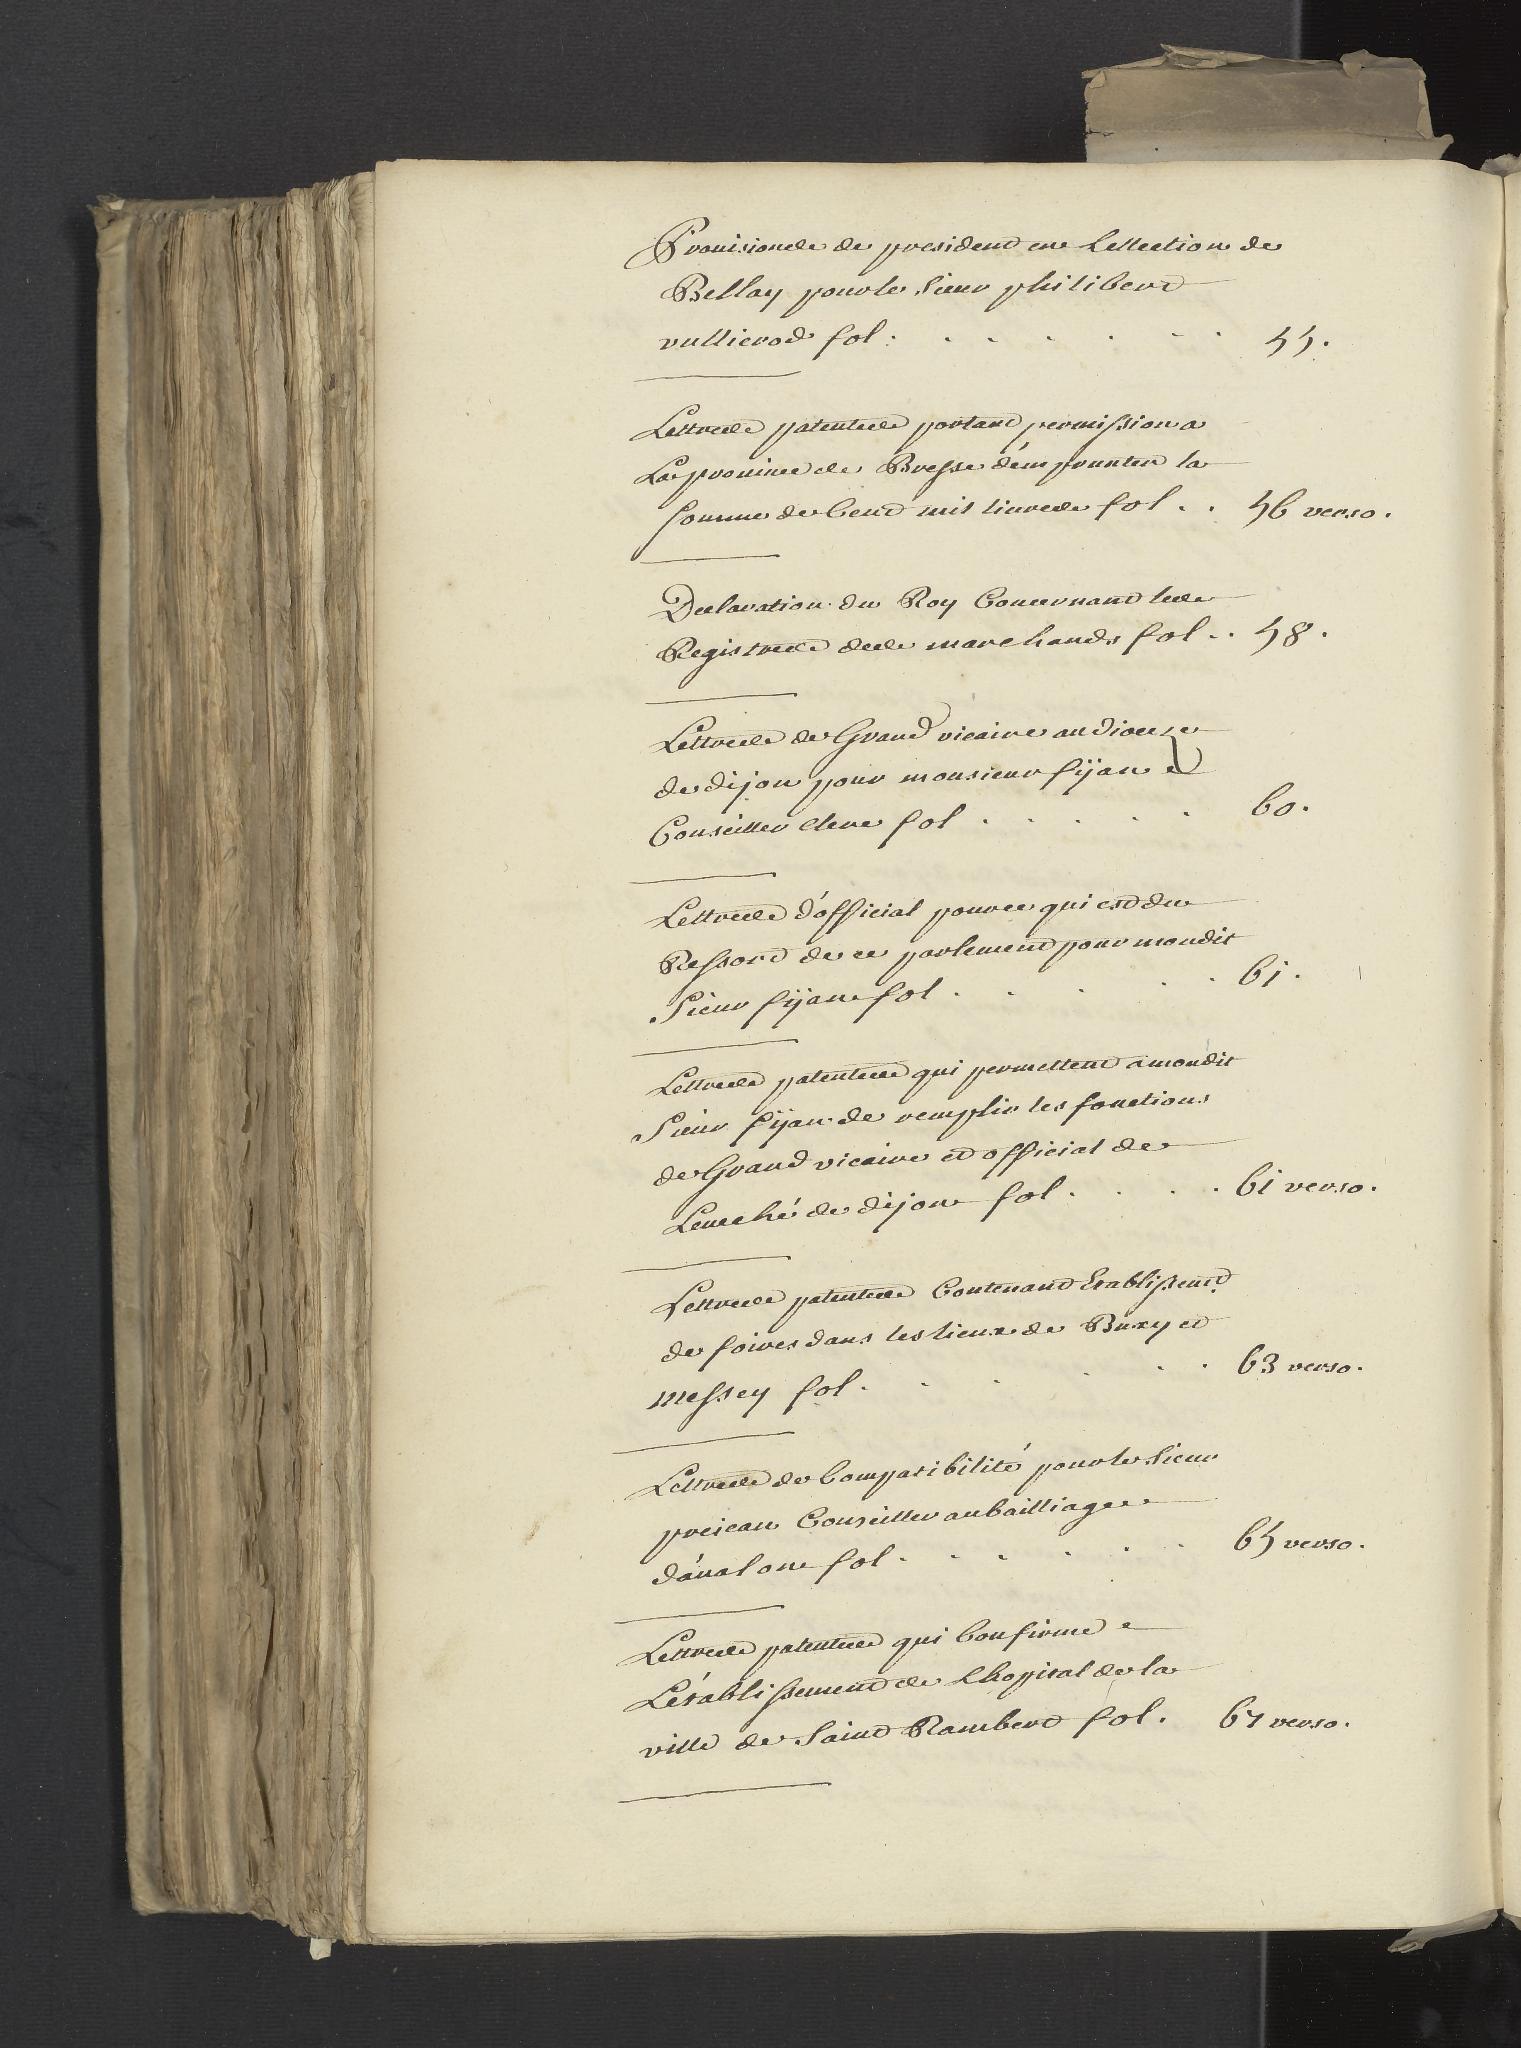 Provisions de president en Lellection de
Bellay pour le sieur philibert
vullierod fol. 55.
Lettres patentes portant permission a
La province de Bresse d'emprunter la
somme de Cent mil livres fol. 56 verso.
Declaration du Roy Concernant les
Registres des marchands fol. 58.
Lettres de Grand vicaire au dioceze
de dijon pour monsieur fijan
Conseiller clerc fol 60.
Lettres d'official pour ce qui est du
Ressort de ce parlement pour mondit
Sieur fijan fol. 61.
Lettres patentes qui permettent a mondit
Sieur fijan de remplir les fonctions
de Grand vicaire et official de
Leveché de dijon fol. 61 verso.
Lettres patentes Contenant Etablissemt.
de foires dans les lieux de Buxy et
messey fol. 63 verso.
Lettres de Compatibilité pour le Sieur
prejean Conseiller au bailliage
d'avalon fol. 65 verso.
Lettres patentes qui Confirme
L'établissement de Lhopital de la
ville de Saint Rambert fol. 67 verso.